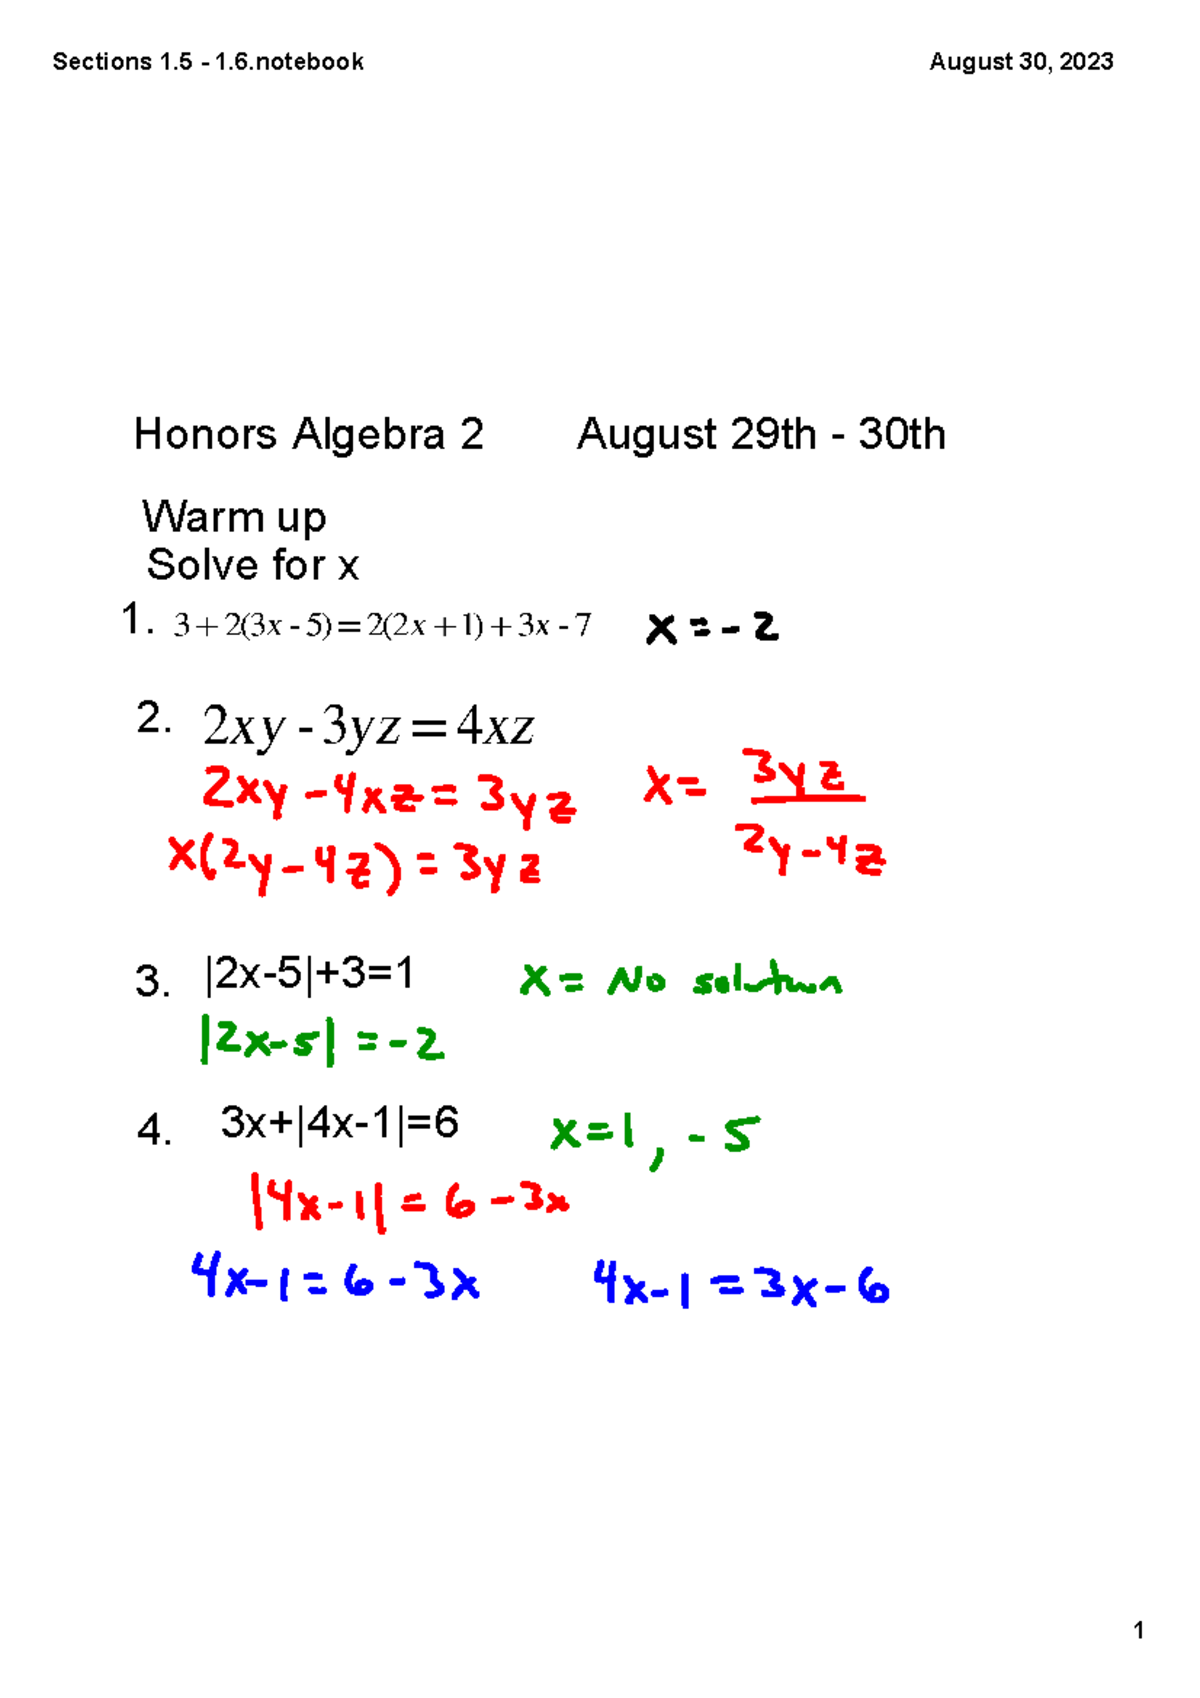 Sections 1.5 - 1.6.notebook August 30, 2023
Honors Algebra 2 August 29th - 30th
Warm up
Solve for x
1. 3+2(3x-5)=2(2x+1)+3x-7 x=-2
2. 2xy-3yz=4xz
2xy-4xz=3yz x= 3yz
x(2y-4z)=3yz 2y-4z
3. |2x-5|+3=1 x= No solution
|2x-5|=-2
4. 3x+|4x-1|=6 x=1, -5
|4x-1|=6-3x
4x-1=6-3x 4x-1=3x-6
1